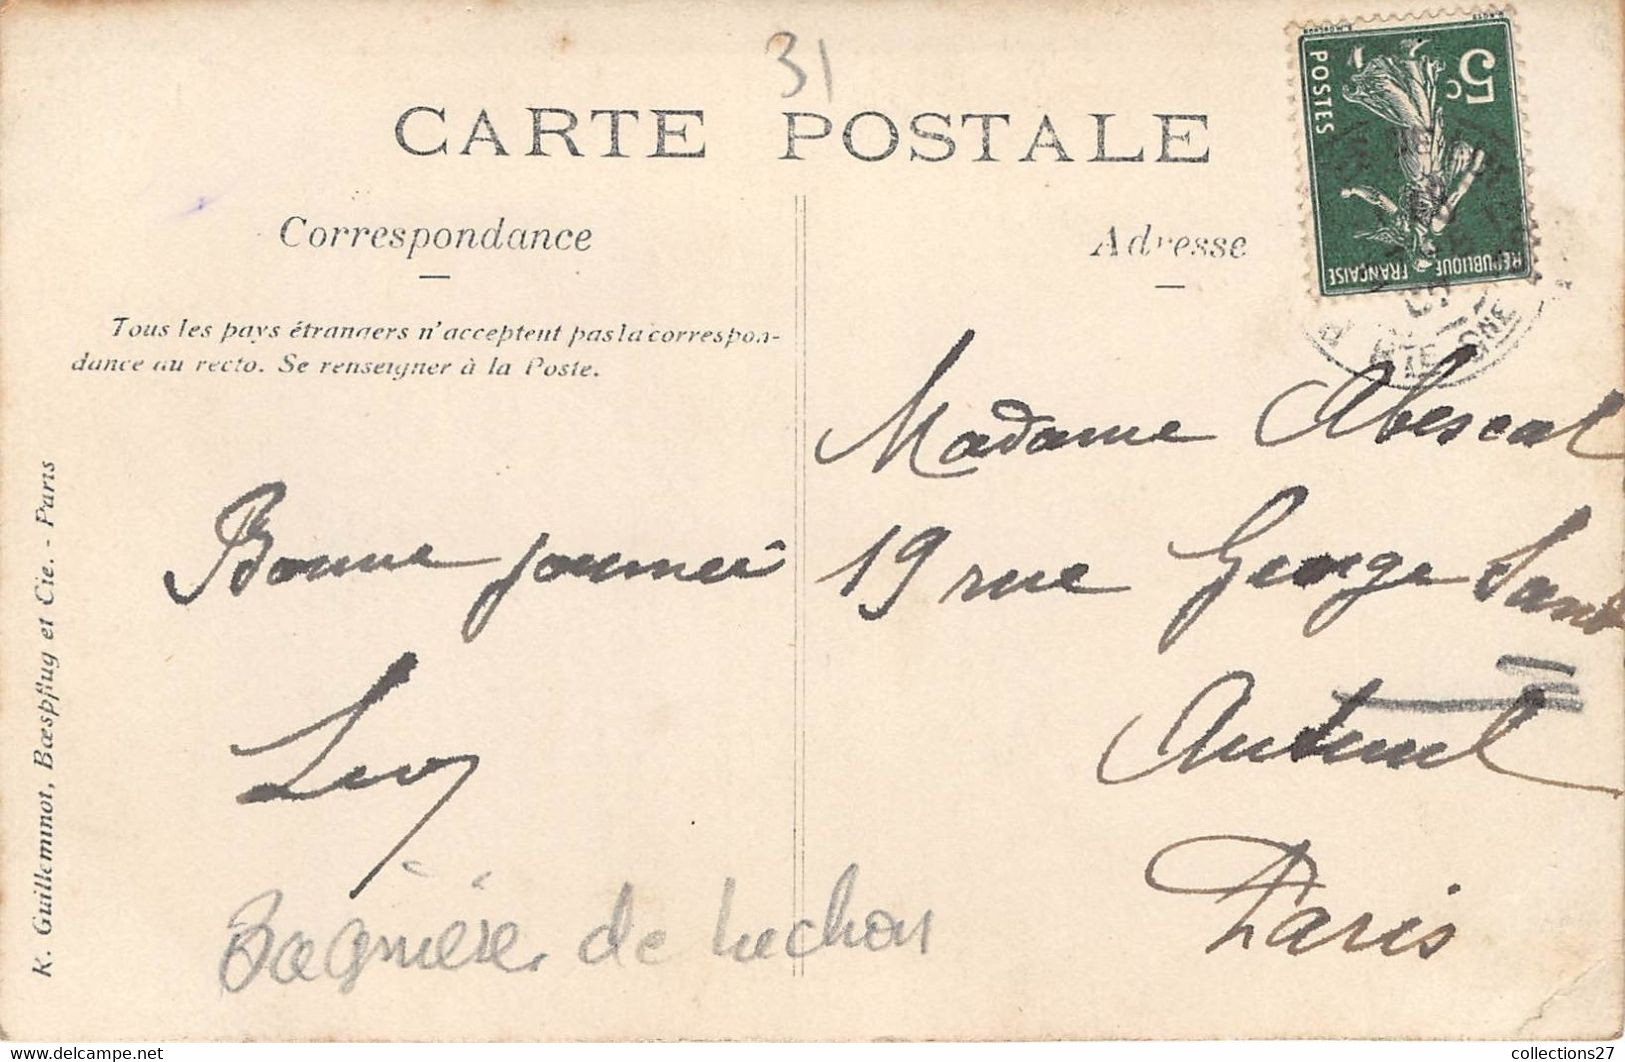 31
CARTE POSTALE
Correspondance
Adresse
Tous les pays étrangers n'acceptent pas la correspon-
dance au recto. Se renseigner à la Poste.
K. Guilleminot, Bœspflug et Cie. - Paris
5c
POSTES
RÉPUBLIQUE FRANÇAISE
Madame Abescat
19 rue George Sand
Auteuil
Paris
Bonne journée
Bagnères de Luchon
collections27